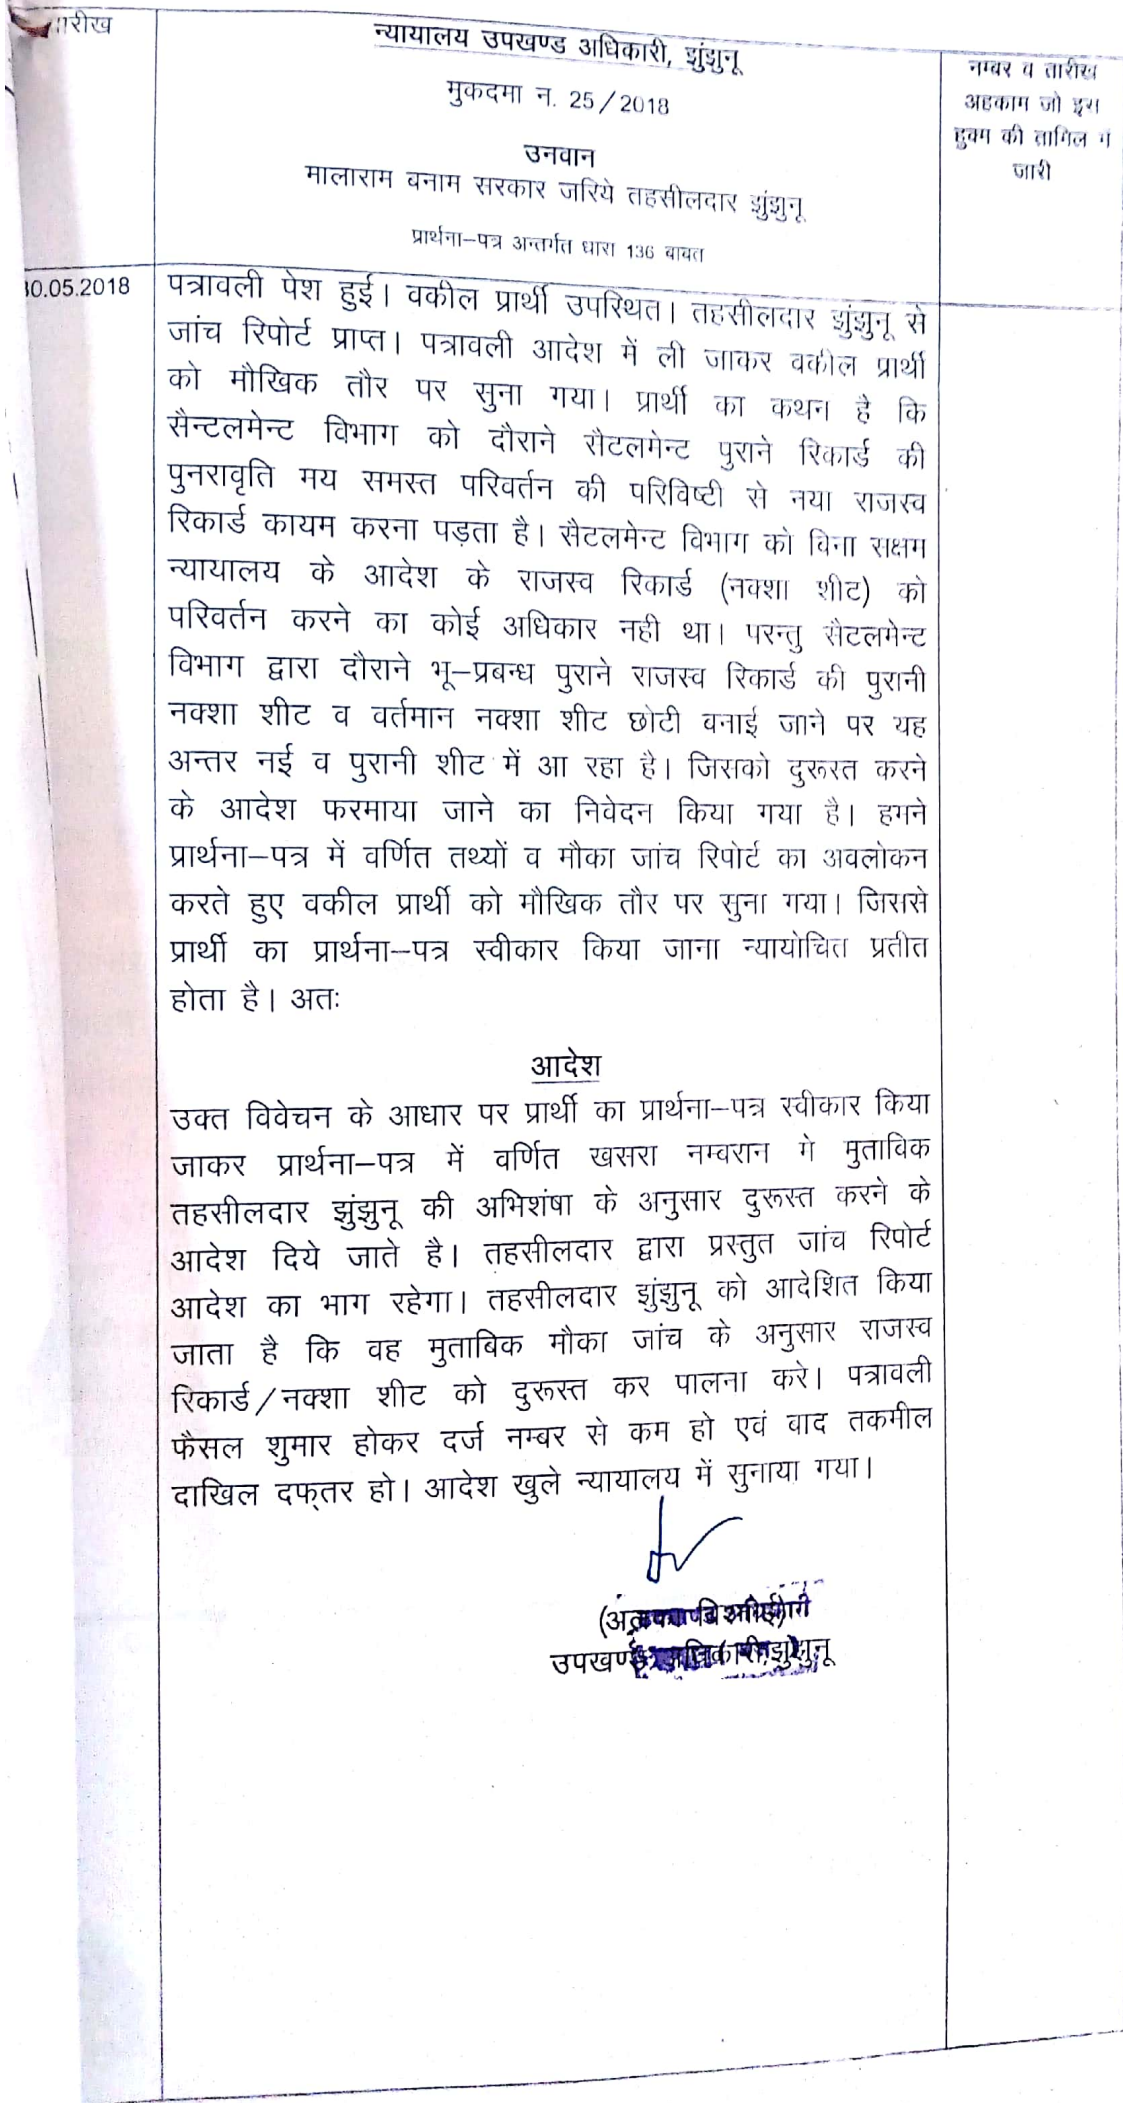 तारीख
न्यायालय उपखण्ड अधिकारी, झुंझुनू
मुकदमा न. 25/2018
उनवान
मालाराम बनाम सरकार जरिये तहसीलदार झुंझुनू
प्रार्थना–पत्र अन्तर्गत धारा 136 बाबत
नम्बर व तारीख
अहकाम जो इस
हुक्म की तामिल में
जारी
30.05.2018
पत्रावली पेश हुई। वकील प्रार्थी उपस्थित। तहसीलदार झुंझुनू से
जांच रिपोर्ट प्राप्त। पत्रावली आदेश में ली जाकर वकील प्रार्थी
को मौखिक तौर पर सुना गया। प्रार्थी का कथन है कि
सैन्टलमेन्ट विभाग को दौराने सैटलमेन्ट पुराने रिकार्ड की
पुनरावृति मय समस्त परिवर्तन की परिविष्टी से नया राजस्व
रिकार्ड कायम करना पड़ता है। सैटलमेन्ट विभाग को बिना सक्षम
न्यायालय के आदेश के राजस्व रिकार्ड (नक्शा शीट) को
परिवर्तन करने का कोई अधिकार नही था। परन्तु सैटलमेन्ट
विभाग द्वारा दौराने भू–प्रबन्ध पुराने राजस्व रिकार्ड की पुरानी
नक्शा शीट व वर्तमान नक्शा शीट छोटी बनाई जाने पर यह
अन्तर नई व पुरानी शीट में आ रहा है। जिसको दुरूस्त करने
के आदेश फरमाया जाने का निवेदन किया गया है। हमने
प्रार्थना–पत्र में वर्णित तथ्यों व मौका जांच रिपोर्ट का अवलोकन
करते हुए वकील प्रार्थी को मौखिक तौर पर सुना गया। जिससे
प्रार्थी का प्रार्थना–पत्र स्वीकार किया जाना न्यायोचित प्रतीत
होता है। अतः
आदेश
उक्त विवेचन के आधार पर प्रार्थी का प्रार्थना–पत्र स्वीकार किया
जाकर प्रार्थना–पत्र में वर्णित खसरा नम्बरान मे मुताबिक
तहसीलदार झुंझुनू की अभिशंषा के अनुसार दुरूस्त करने के
आदेश दिये जाते है। तहसीलदार द्वारा प्रस्तुत जांच रिपोर्ट
आदेश का भाग रहेगा। तहसीलदार झुंझुनू को आदेशित किया
जाता है कि वह मुताबिक मौका जांच के अनुसार राजस्व
रिकार्ड/नक्शा शीट को दुरूस्त कर पालना करे। पत्रावली
फैसल शुमार होकर दर्ज नम्बर से कम हो एवं बाद तकमील
दाखिल दफ्तर हो। आदेश खुले न्यायालय में सुनाया गया।
उपखण्ड अधिकारी, झुंझुनू